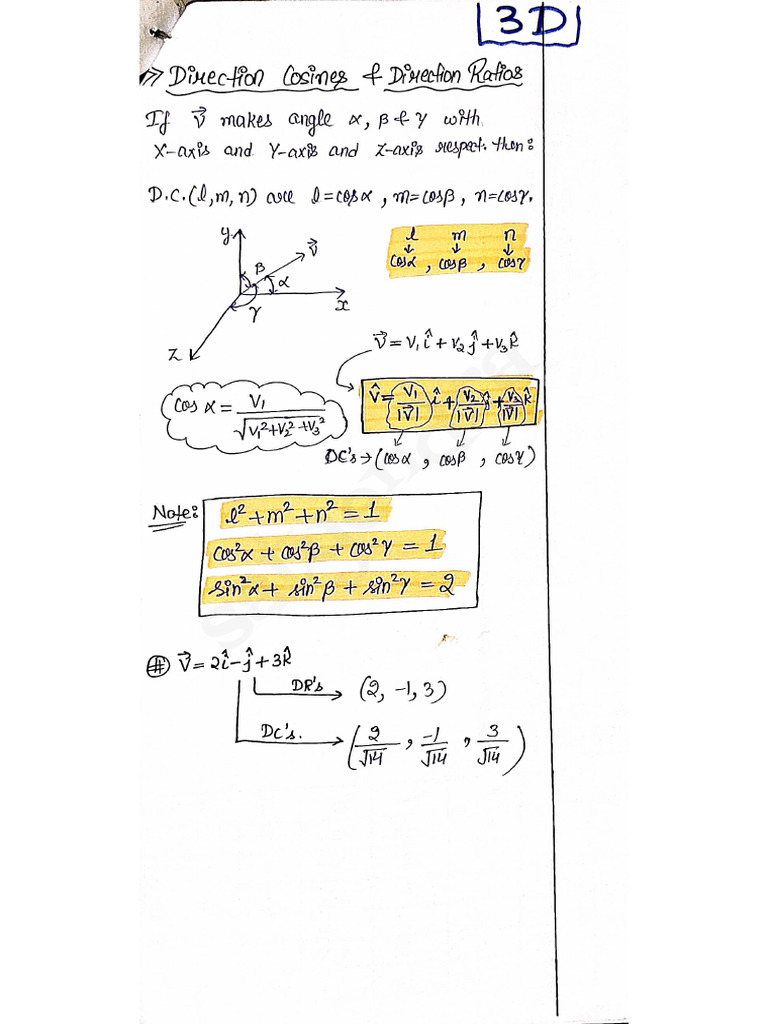 3D
Direction Cosines & Direction Ratios
If V⃗ makes angle α, β & γ with
X-axis and Y-axis and Z-axis respect. then:
D.C.(l,m,n) are l=cosα, m=cosβ, n=cosγ.
l m n
↓ ↓ ↓
cosα, cosβ, cosγ
y V⃗
β α
γ x
z
V⃗ = V₁î + V₂ĵ + V₃k̂
cos α = V₁/√(V₁²+V₂²+V₃²)
V̂ = V₁/|V⃗| î + V₂/|V⃗| ĵ + V₃/|V⃗| k̂
DC's → (cosα, cosβ, cosγ)
Note:
l²+m²+n² = 1
cos²α + cos²β + cos²γ = 1
sin²α + sin²β + sin²γ = 2
# V⃗ = 2î-ĵ+3k̂
DR's → (2, -1, 3)
DC's. → (2/√14, -1/√14, 3/√14)